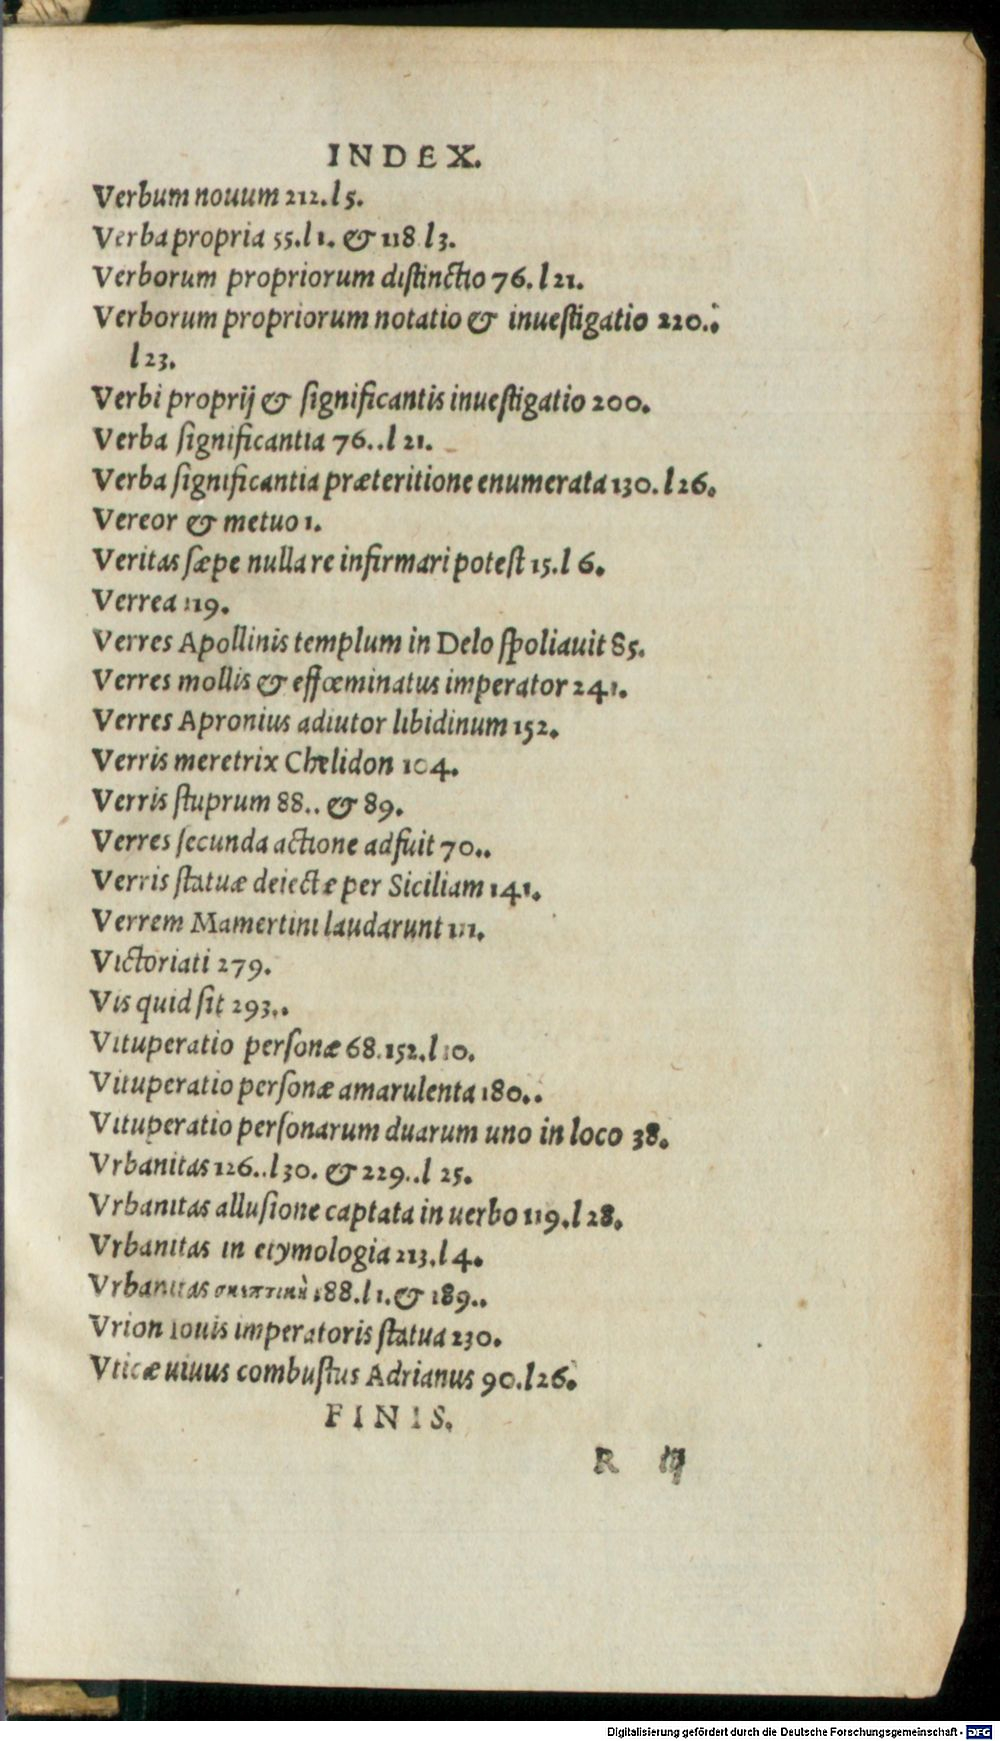 INDEX.
Verbum nouum 212. l 5.
Verba propria 55. l 1. & 118 l 3.
Verborum propriorum distinctio 76. l 21.
Verborum propriorum notatio & inuestigatio 220..
l 23.
Verbi proprij & significantis inuestigatio 200.
Verba significantia 76.. l 21.
Verba significantia præteritione enumerata 130. l 26.
Vereor & metuo 1.
Veritas sæpe nulla re infirmari potest 15. l 6.
Verrea 119.
Verres Apollinis templum in Delo spoliauit 85.
Verres mollis & effœminatus imperator 241.
Verres Apronius adiutor libidinum 152.
Verris meretrix Chelidon 104.
Verris stuprum 88.. & 89.
Verres secunda actione adfuit 70..
Verris statuæ deiectæ per Siciliam 141.
Verrem Mamertini laudarunt 111.
Victoriati 279.
Vis quid sit 293..
Vituperatio personæ 68. 152. l 10.
Vituperatio personæ amarulenta 180..
Vituperatio personarum duarum uno in loco 38.
Vrbanitas 126.. l 30. & 229.. l 25.
Vrbanitas allusione captata in uerbo 119. l 28.
Vrbanitas in etymologia 213. l 4.
Vrbanitas σκωπτικὴ 188. l 1. & 189..
Vrion Iouis imperatoris statua 230.
Vticæ uiuus combustus Adrianus 90. l 26.
FINIS.
R
Digitalisierung gefördert durch die Deutsche Forschungsgemeinschaft - DFG